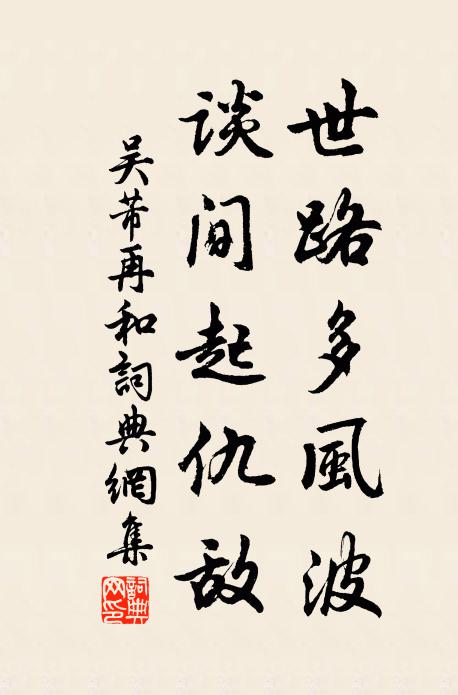 世路多風波
谈间起仇敌
吴芾再和詞典網集
詞典网印